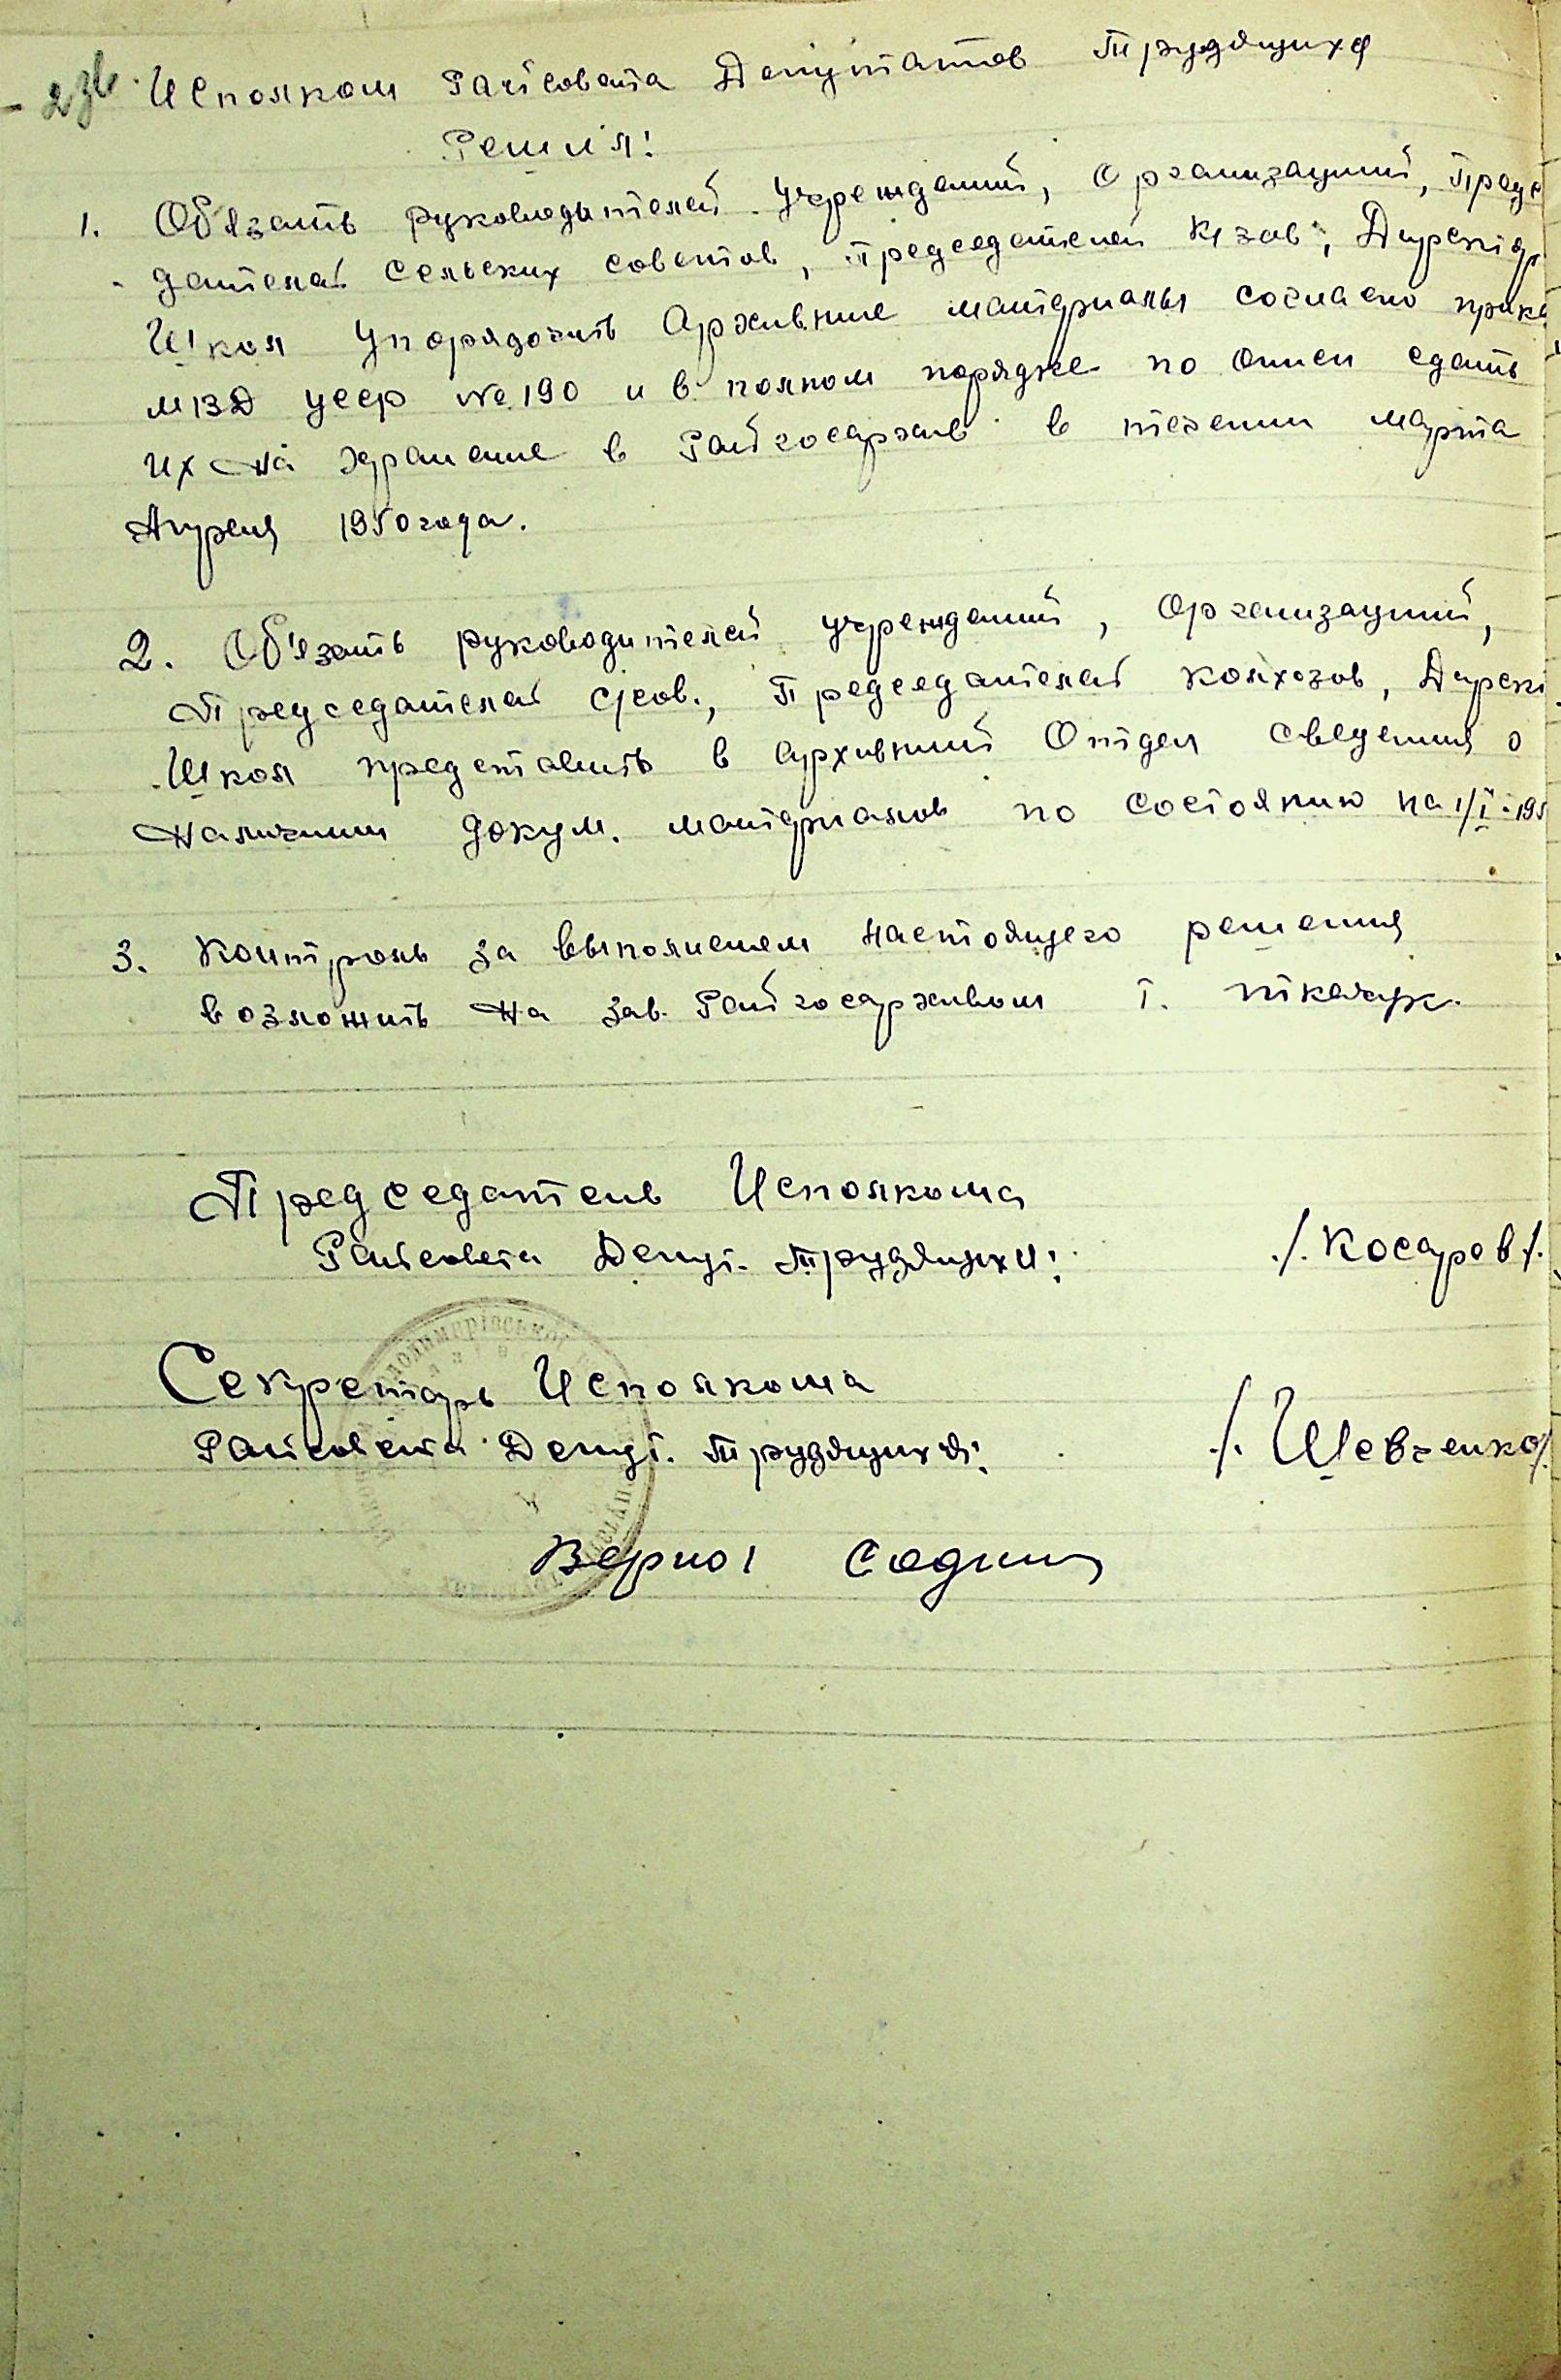 236
Исполком Райсовета Депутатов Трудящихся
Решил:
1. Об'язать руководителей учреждений, организаций, Предсе
дателей сельских советов, председателей к/зов, Директор
Школ упорядочить Архивние материалы согласно прика
МВД УССР № 190 и в полном порядке по описи сдать
их на хранение в Райгосархив в течении марта
Апреля 1950 года.
2. Об'язать руководителей учреждений, организаций,
Председателей с/сов., Председателей колхозов, Дирек
Школ представить в архивний Отдел сведения о
наличии докум. материалов по состоянию на 1/I-195
3. Контроль за выполнением настоящего решения
возложить на зав. Райгосархивом т. Ткачук.
Председатель Исполкома
Райсовета Депут. Трудящихся: /. Косарев /.
Секретарь Исполкома
Райсовета Депут. Трудящихся: /. Шевченко /.
Верно: